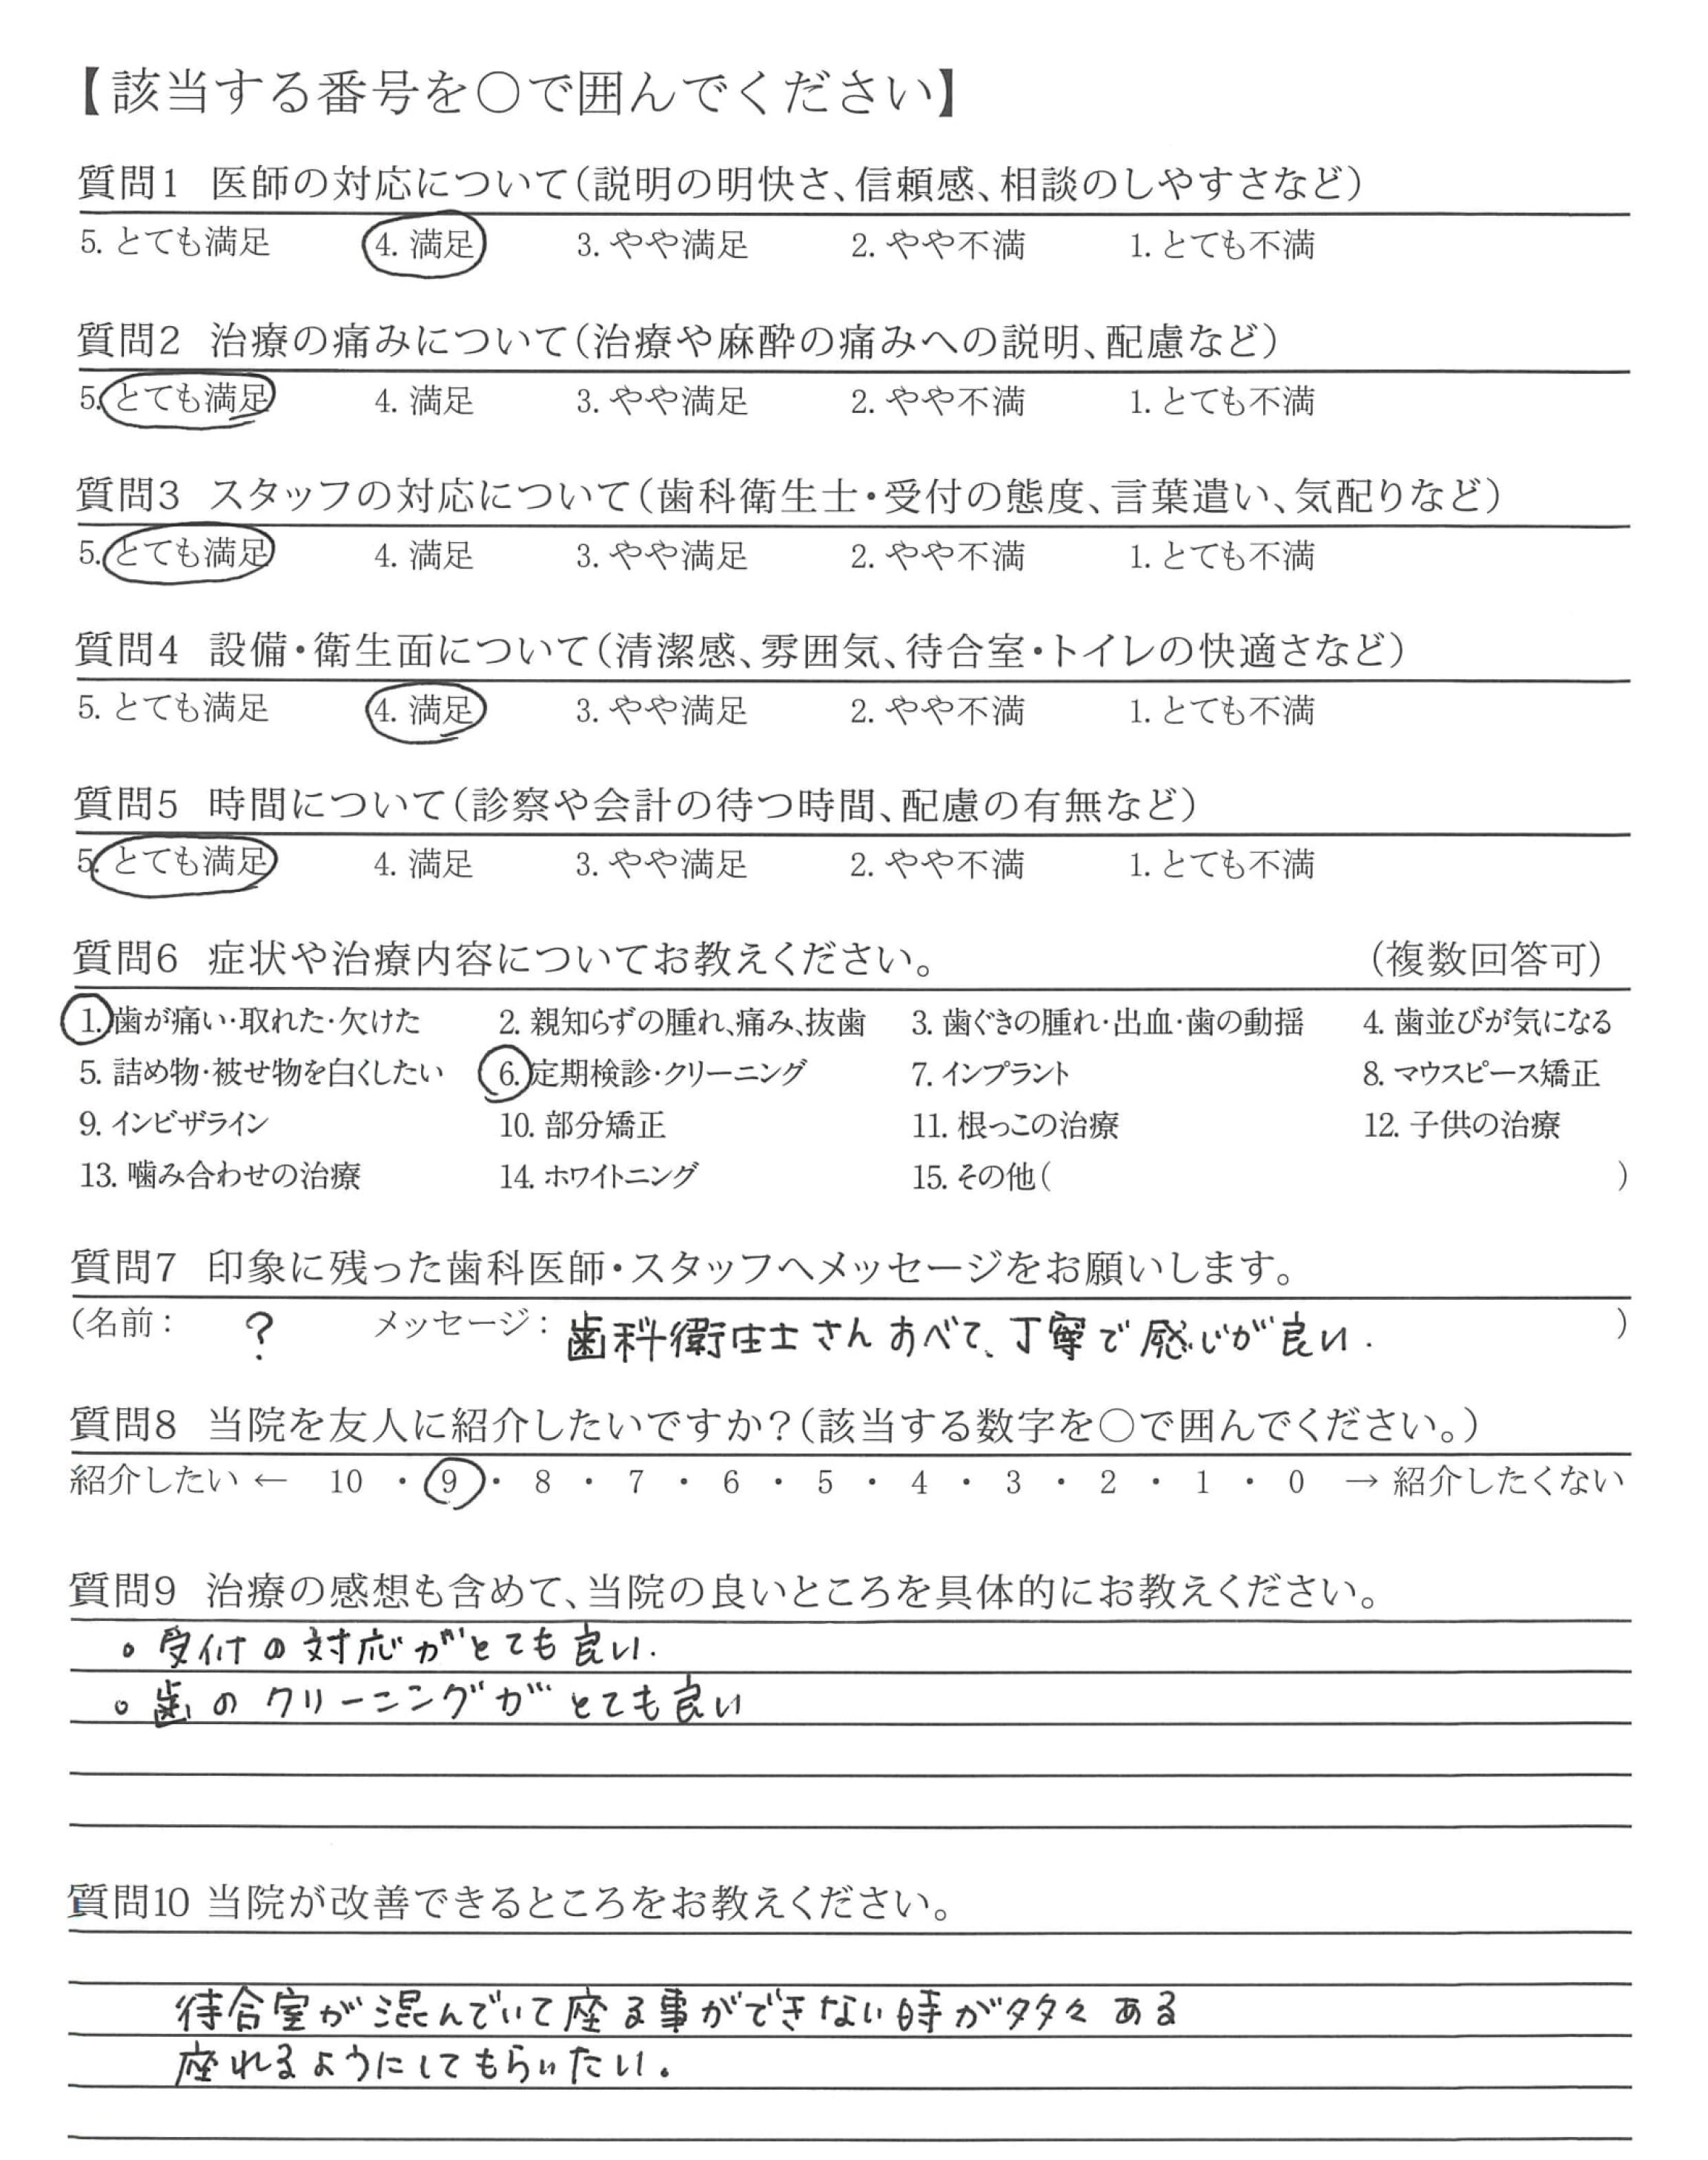 【該当する番号を○で囲んでください】
質問1 医師の対応について(説明の明快さ、信頼感、相談のしやすさなど)
5. とても満足 4. 満足 3. やや満足 2. やや不満 1. とても不満
質問2 治療の痛みについて(治療や麻酔の痛みへの説明、配慮など)
5. とても満足 4. 満足 3. やや満足 2. やや不満 1. とても不満
質問3 スタッフの対応について(歯科衛生士・受付の態度、言葉遣い、気配りなど)
5. とても満足 4. 満足 3. やや満足 2. やや不満 1. とても不満
質問4 設備・衛生面について(清潔感、雰囲気、待合室・トイレの快適さなど)
5. とても満足 4. 満足 3. やや満足 2. やや不満 1. とても不満
質問5 時間について(診察や会計の待つ時間、配慮の有無など)
5. とても満足 4. 満足 3. やや満足 2. やや不満 1. とても不満
質問6 症状や治療内容についてお教えください。 (複数回答可)
1. 歯が痛い・取れた・欠けた 2. 親知らずの腫れ、痛み、抜歯 3. 歯ぐきの腫れ・出血・歯の動揺 4. 歯並びが気になる
5. 詰め物・被せ物を白くしたい 6. 定期検診・クリーニング 7. インプラント 8. マウスピース矯正
9. インビザライン 10. 部分矯正 11. 根っこの治療 12. 子供の治療
13. 噛み合わせの治療 14. ホワイトニング 15. その他( )
質問7 印象に残った歯科医師・スタッフへメッセージをお願いします。
(名前: ? メッセージ: 歯科衛生士さん 丁寧で感じが良い. )
質問8 当院を友人に紹介したいですか?(該当する数字を○で囲んでください。)
紹介したい ← 10 ・ 9 ・ 8 ・ 7 ・ 6 ・ 5 ・ 4 ・ 3 ・ 2 ・ 1 ・ 0 → 紹介したくない
質問9 治療の感想も含めて、当院の良いところを具体的にお教えください。
。受付の対応がとても良い.
。歯のクリーニングがとても良い
質問10 当院が改善できるところをお教えください。
待合室が混んでいて座る事ができない時が多々ある
座れるようにしてもらいたい。